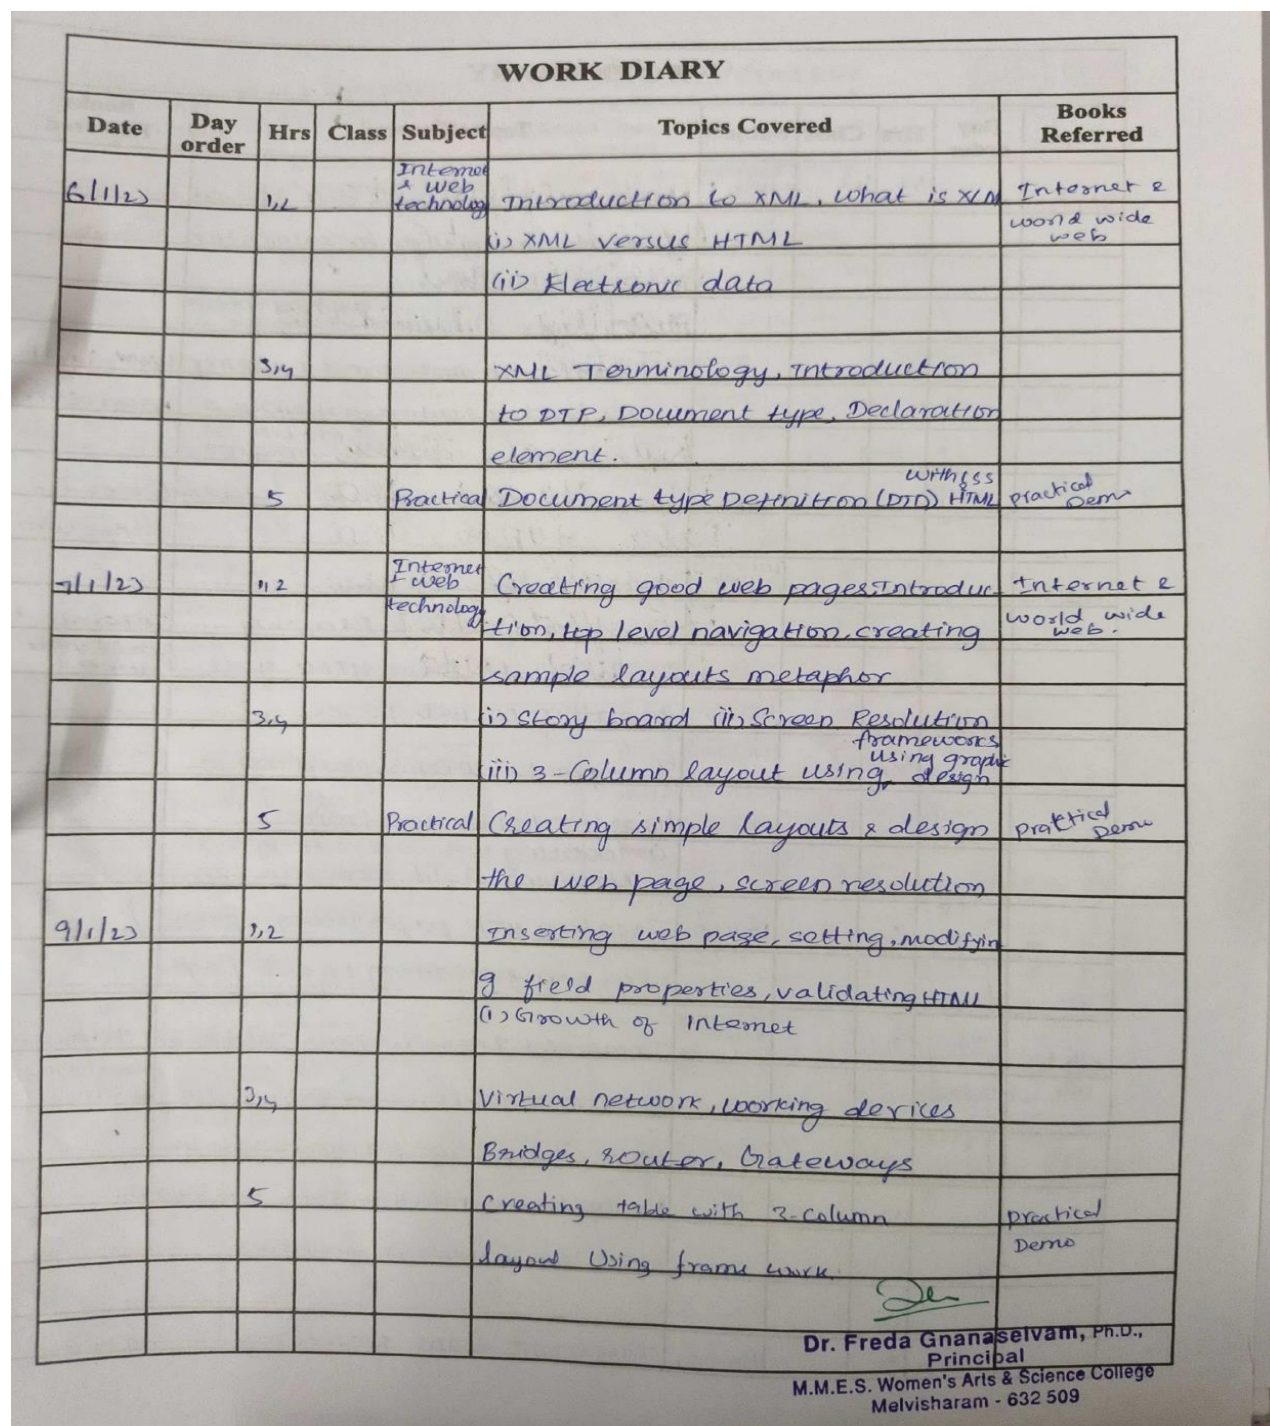 WORK DIARY
Date Day order Hrs Class Subject Topics Covered Books Referred
Internet
& web
6/1/23 1,2 technolog Introduction to XML, what is XLM Internet &
(i) XML versus HTML world wide web
(ii) Electronic data
3,4 XML Terminology, Introduction
to DTP, Document type, Declaration
element.
with
5 Practical Document type Definition (DTD) HTML practical Demo
Internet
7/1/23 1,2 & web Creating good web pages, Introduc Internet &
technology tion, top level navigation, creating world wide web.
sample layouts metaphor
3,4 (i) Story board (ii) Screen Resolution
frameworks
using graphic
(iii) 3-Column layout using design
5 Practical Creating simple layouts & design practical Demo
the web page, screen resolution
9/1/23 1,2 Inserting web page, setting, modifyin
g field properties, validating HTML
(i) Growth of Internet
3,4 Virtual network, working devices
Bridges, router, Gateways
5 Creating table with 3-column practical
layout Using frame work. Demo
Dr. Freda Gnanaselvam, Ph.D.,
Principal
M.M.E.S. Women's Arts & Science College
Melvisharam - 632 509